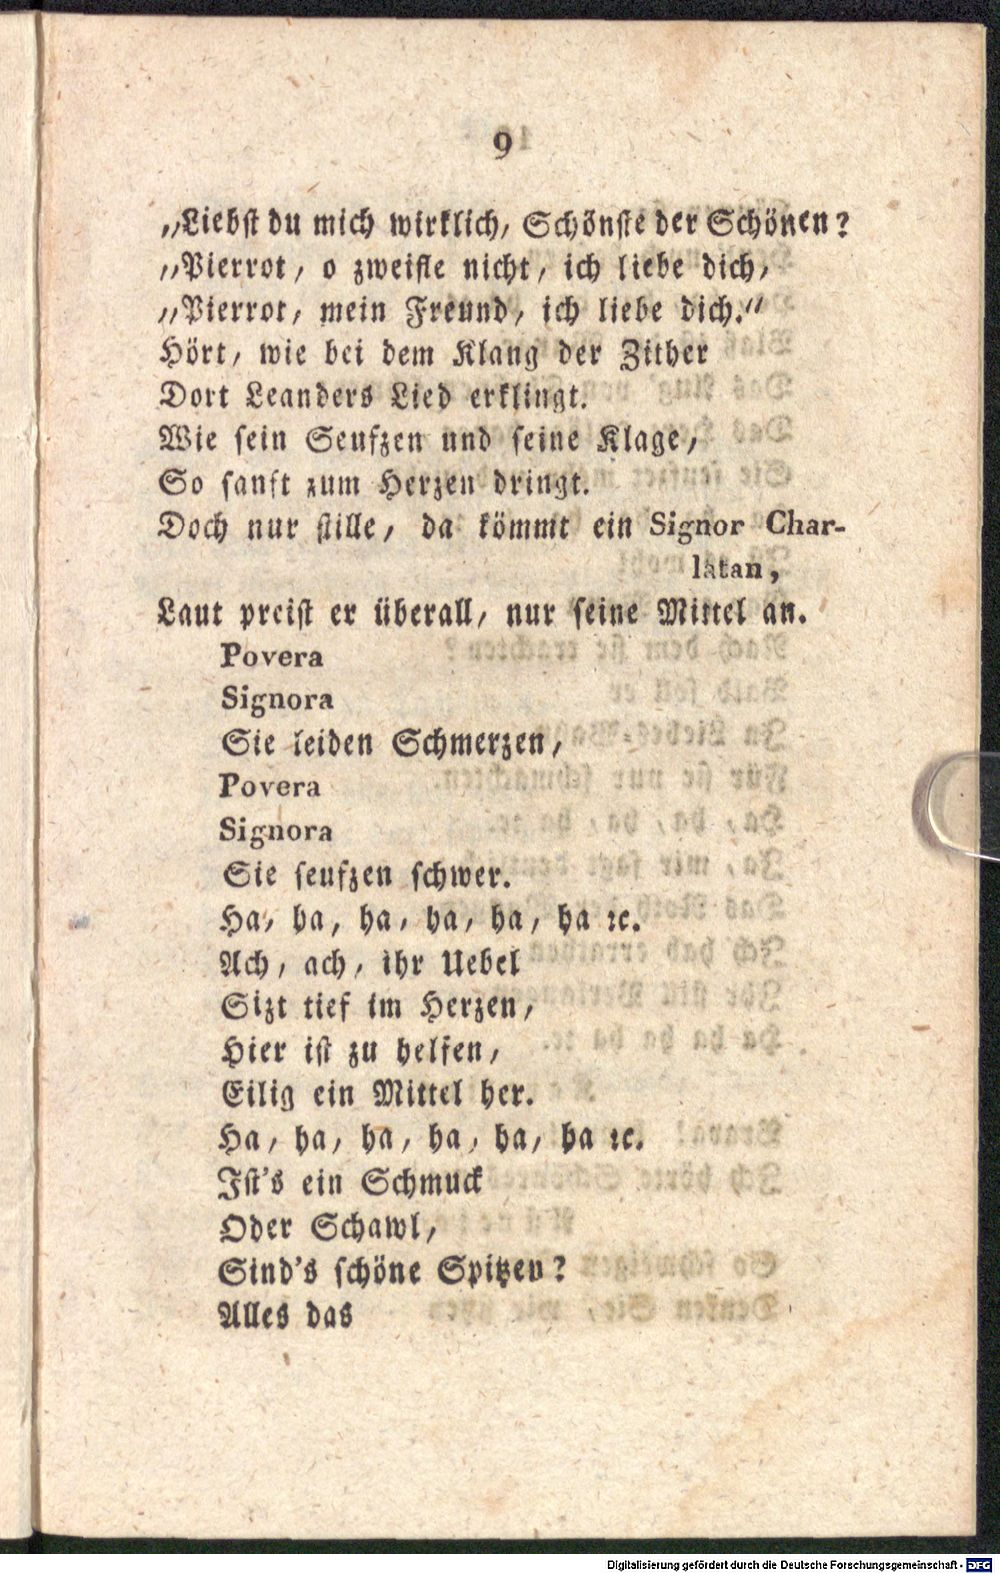 9
„Liebst du mich wirklich, Schönste der Schönen?
„Pierrot, o zweifle nicht, ich liebe dich,
„Pierrot, mein Freund, ich liebe dich.“
Hört, wie bei dem Klang der Zither
Dort Leanders Lied erklingt.
Wie sein Seufzen und seine Klage,
So sanft zum Herzen dringt.
Doch nur stille, da kömmt ein Signor Char-
latan,
Laut preist er überall, nur seine Mittel an.
Povera
Signora
Sie leiden Schmerzen,
Povera
Signora
Sie seufzen schwer.
Ha, ha, ha, ha, ha, ha ꝛc.
Ach, ach, ihr Uebel
Sizt tief im Herzen,
Hier ist zu helfen,
Eilig ein Mittel her.
Ha, ha, ha, ha, ha, ha ꝛc.
Ist's ein Schmuck
Oder Schawl,
Sind's schöne Spitzen?
Alles das
Digitalisierung gefördert durch die Deutsche Forschungsgemeinschaft - DFG